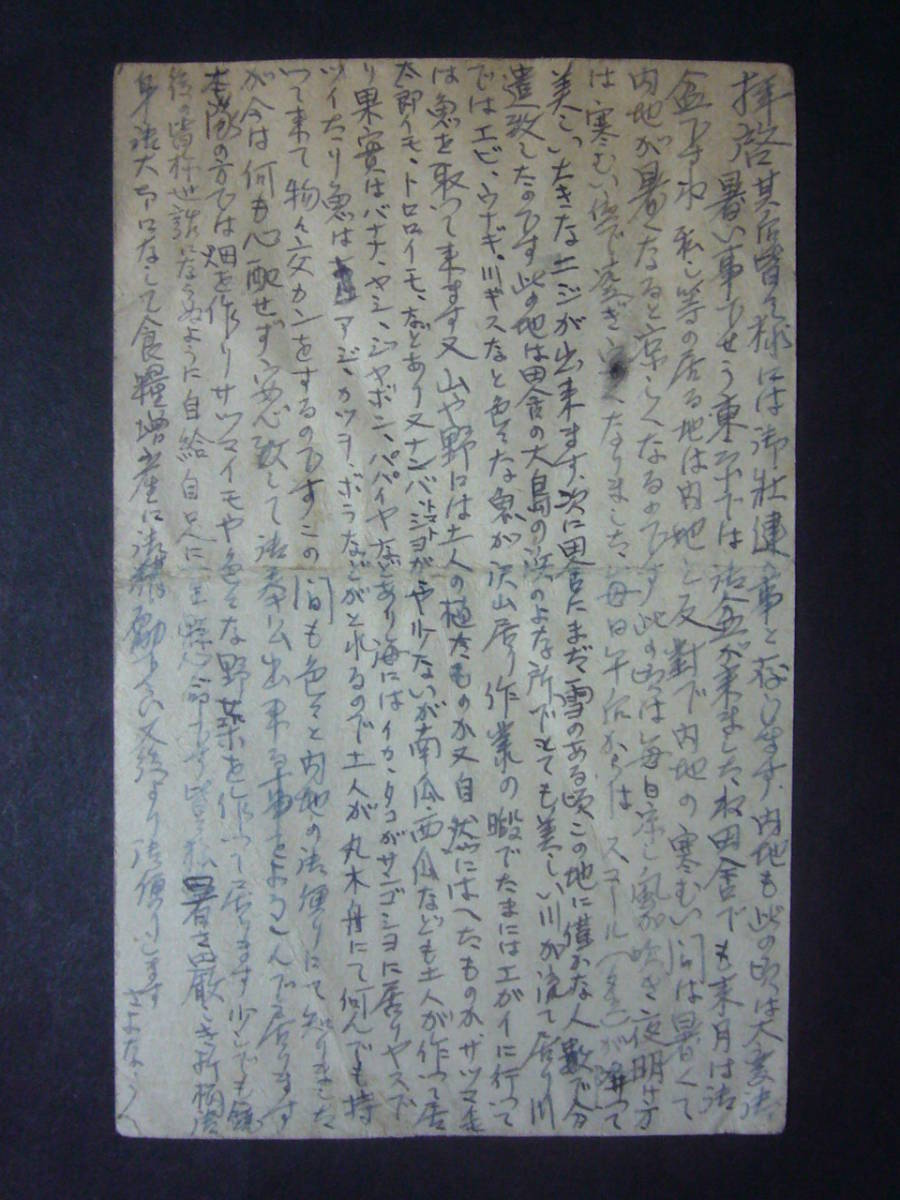 拝啓 其后皆々様には御壮健の事と存じます、内地も此の頃は大変御
暑い事でせう東京では御盆が来ましたね田舎でも来月は御
盆ですね 私し等の居る地は内地と反対で内地の寒むい間は暑くて
内地が暑くなると涼しくなるのです此の頃は毎日涼し風が吹き夜明け方
は寒むい位で くなりました毎日午后からはスコールへ が降つて
美しいたきなニジが出来ます、次に田舎にまだ雪のある頃この地に僅かな人数で分
遣致したのです此の地は田舎の大島の浜のよな所でとても美しい川が流れて居り川
ではエビ、ウナギ、川ギスなど色々な魚が沢山居り作業の暇でたまにはエガイに行つて
は魚を取つて来ます又山や野には土人の植たものか又自然にはへたものかサツマ芋
太郎イモ、トロロイモ、などあり又ナンバトマトヨがやルたいが南瓜西瓜なども土人が作つて居
り果実はバナナ、ヤシ、ジヤボン、パパイヤなどあり海にはイカ、タコがサンゴシヨに居りヤスで
ツイたり魚はアジ、カツヲ、ボラなどがとれるので土人が丸木舟にて何んでも持
つて来て物々交カンをするのですこの間も色々と内地の御便りにて知りました
が今は何も心配せず安心致して御奉公出来る事をよろこんで居ります
本隊の方では畑を作りサツマイモや色々な野菜を作つて居ります少しでも銃
後の皆様世話にならぬように自給自足に一生懸命です皆々様暑さ厳しき折柄御
身御大切になして食糧増産に御精励下さい又後より御便りします さよなら